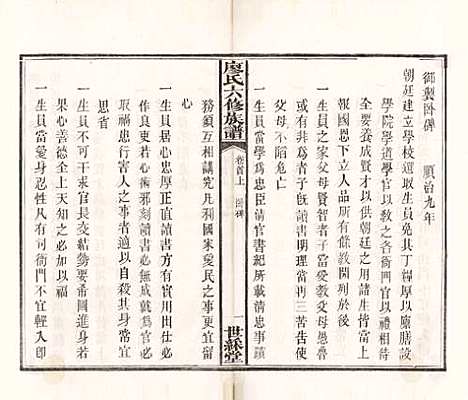 御製卧碑　順治九年
朝廷建立學校選取生員免其丁糧厚以廩膳設
學院學道學官以教之各衙門官以禮相待
全要養成賢才以供朝廷之用諸生皆當上
報國恩下立人品所有條教開列於後
一生員之家父母賢智者子當受教父母愚魯
或有為非者子既讀書明理當再三苦告使
父母不陷危亡
一生員當學為忠臣清官書紀所載清忠事蹟
廖氏六修族譜
卷首上　卧碑
一
世綵堂
務須互相講究凡利國家愛民之事更宜留
心
一生員居心忠厚正直讀書方有實用出仕必
作良吏若心術邪刻讀書必無成就為官必
取禍患行害人之事者適以自殺其身常宜
思省
一生員不可干求官長交結勢要希圖進身若
果心善德全上天知之必加以福
一生員當愛身忍性凡有司衙門不宜輕入即